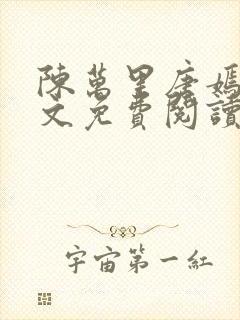 陳萬里唐嫣
文免費閱讀
宇宙第一紅